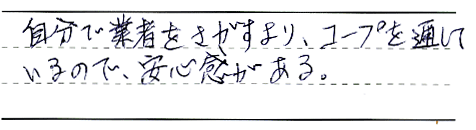 自分で業者をさがすより、コープを通して
いるので、安心感がある。